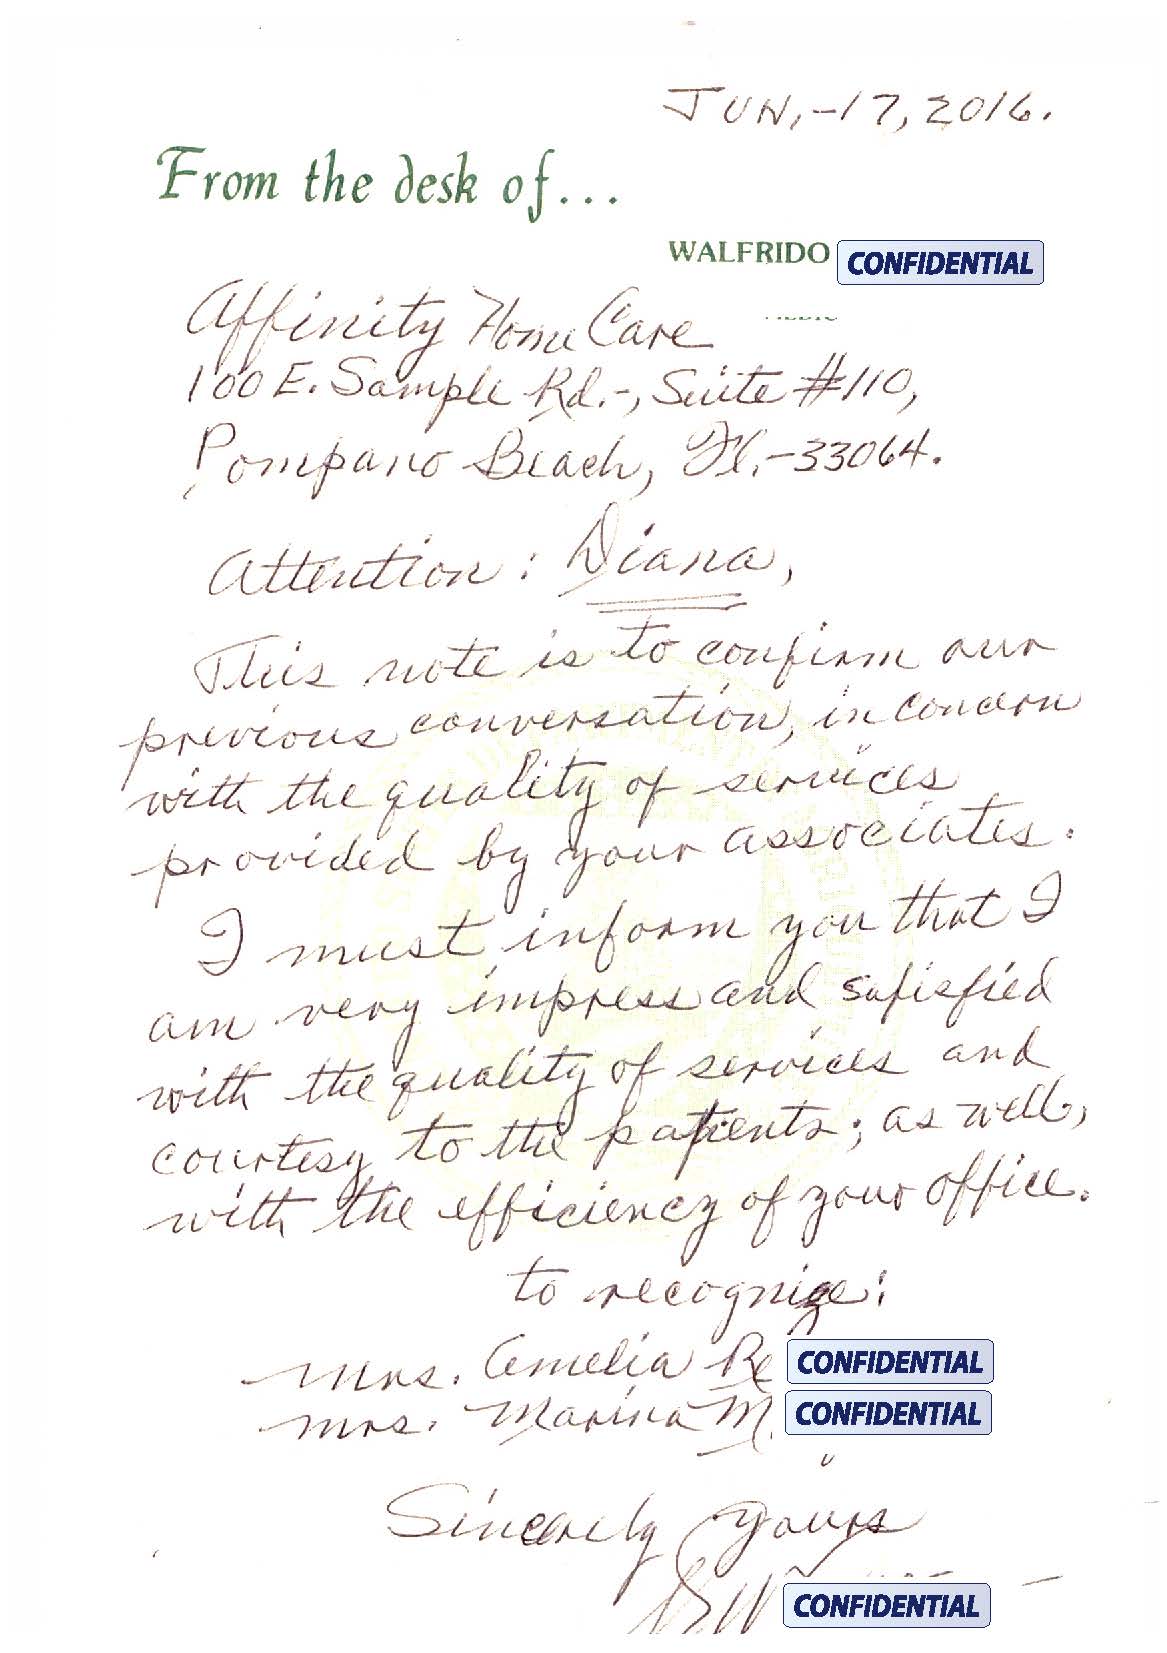 JUN,-17, 2016.
From the desk of...
WALFRIDO CONFIDENTIAL
Affinity Home Care
100 E. Sample Rd.-, Suite #110,
Pompano Beach, Fl,-33064.
Attention: Diana,
This note is to confirm our
previous conversation, in concern
with the quality of services
provided by your associates.
I must inform you that I
am very impress and satisfied
with the quality of services and
courtesy to the patients; as well,
with the efficiency of your office.
to recognize:
Mrs. Amelia Re CONFIDENTIAL
Mrs. Marina M. CONFIDENTIAL
Sincerely yours
CONFIDENTIAL